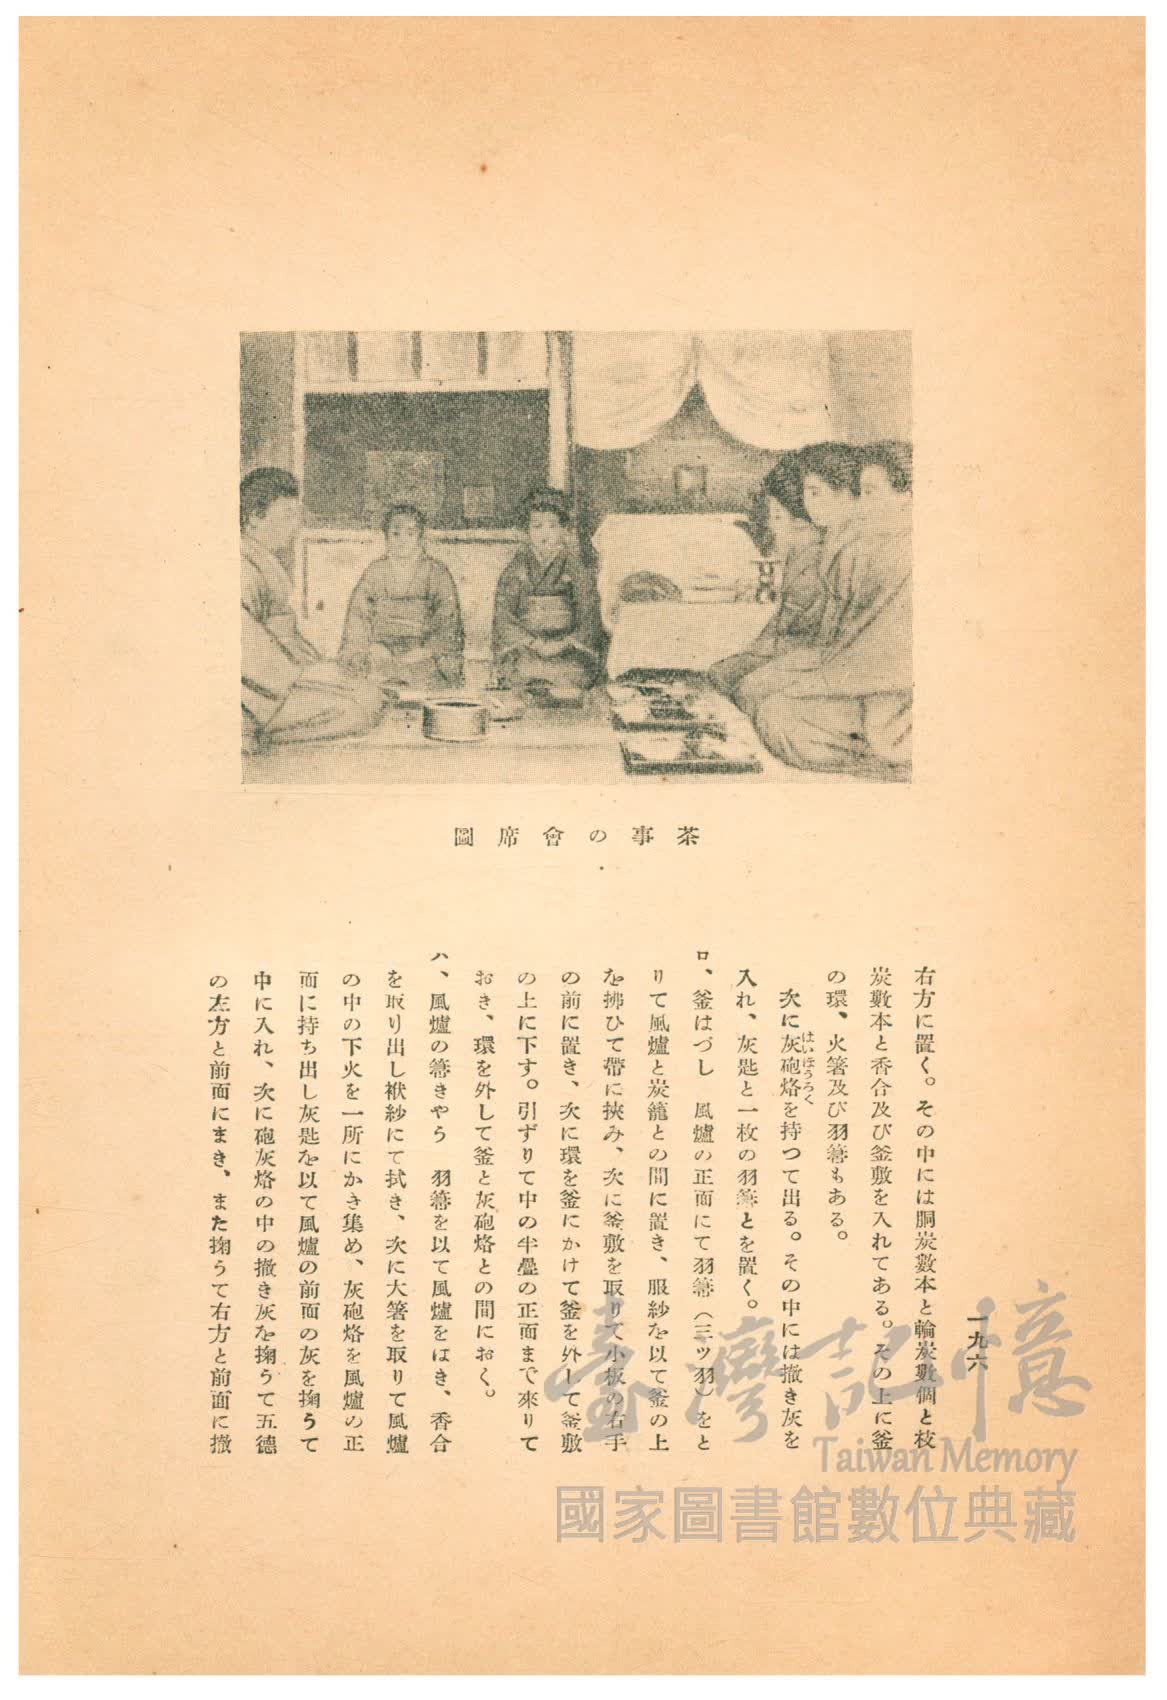 茶事の會席圖
一九六
右方に置く。その中には胴炭數本と輪炭數個と枝
炭數本と香合及び釜敷を入れてある。その上に釜
の環、火箸及び羽箒もある。
次に灰砲烙を持つて出る。その中には撒き灰を
はいほうろく
入れ、灰匙と一枚の羽箒とを置く。
ロ、釜はづし　風爐の正面にて羽箒（三ツ羽）をと
りて風爐と炭籠との間に置き、服紗を以て釜の上
を拂ひて帶に挾み、次に釜敷を取りて小板の右手
の前に置き、次に環を釜にかけて釜を外して釜敷
の上に下す。引ずりて中の半疊の正面まで來りて
おき、環を外して釜と灰砲烙との間におく。
ハ、風爐の箒きやう　羽箒を以て風爐をはき、香合
を取り出し袱紗にて拭き、次に大箸を取りて風爐
の中の下火を一所にかき集め、灰砲烙を風爐の正
面に持ち出し灰匙を以て風爐の前面の灰を掬うて
中に入れ、次に砲灰烙の中の撒き灰を掬うて五德
の左方と前面にまき、また掬うて右方と前面に撒
臺灣記憶
Taiwan Memory
國家圖書館數位典藏